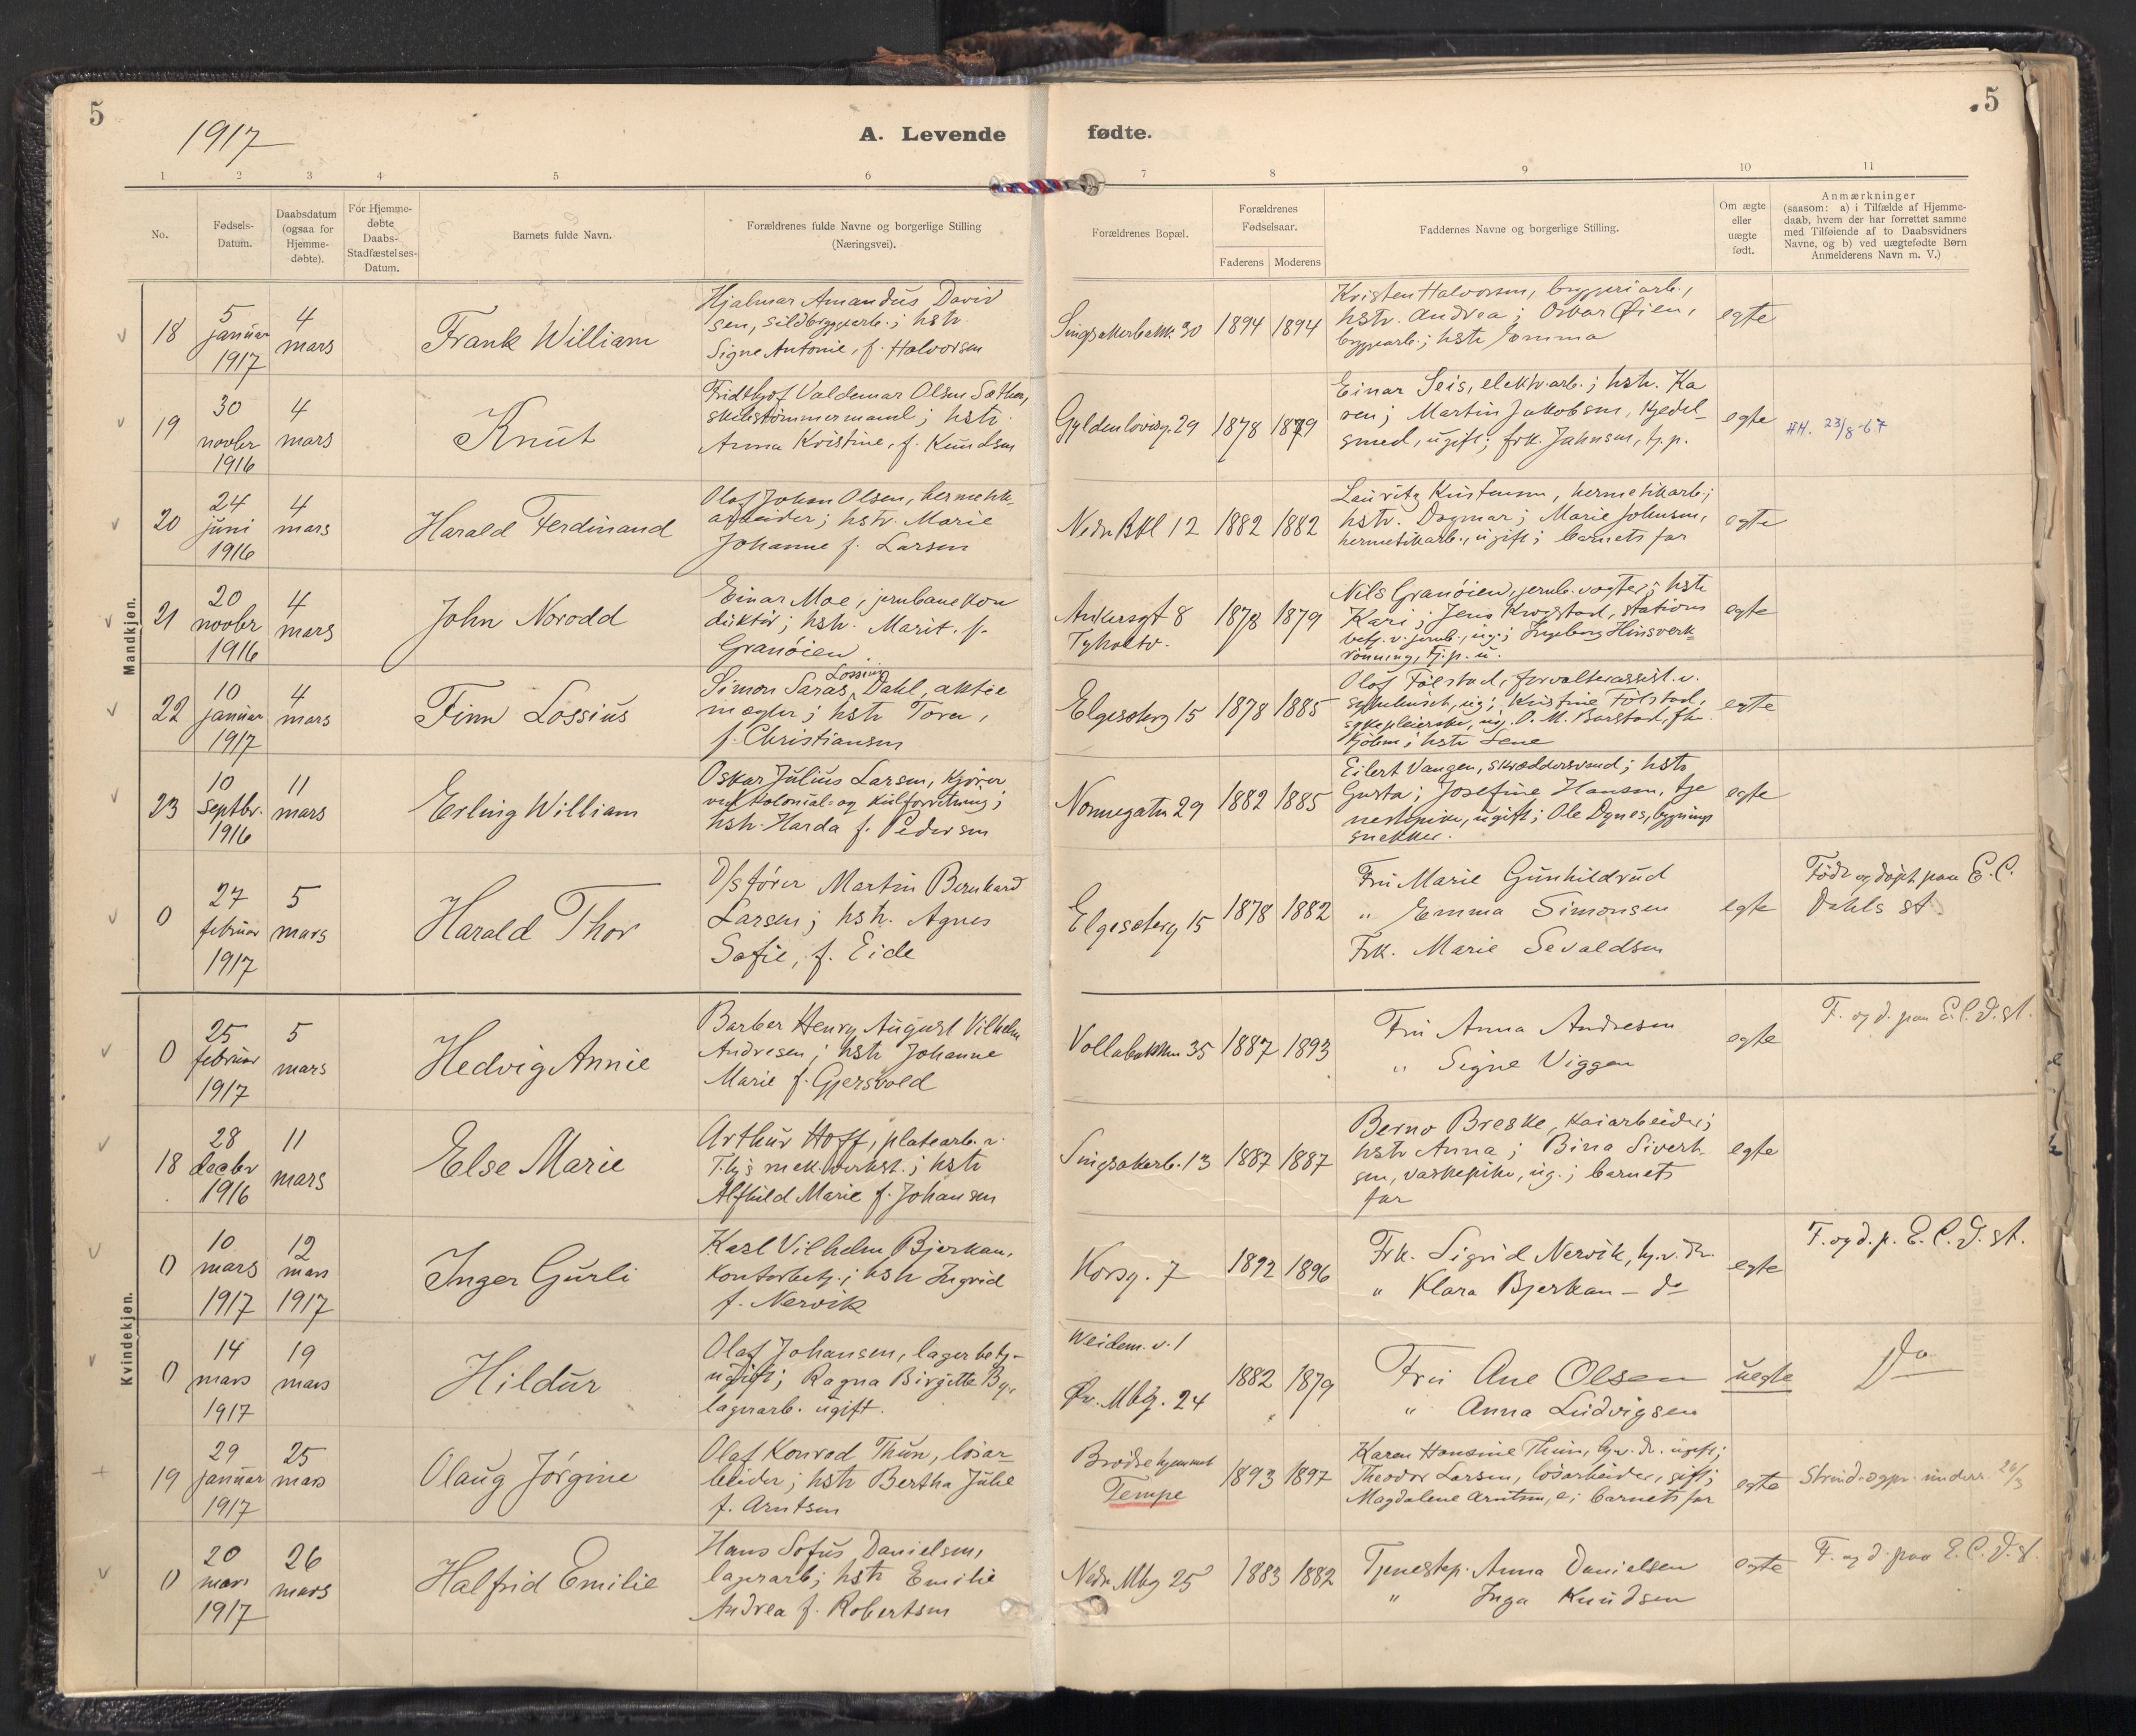 5
1917
A. Levende fødte.
.5
1 2 3 4 5 6 7 8 9 10 11
No.
Fødsels-
Datum.
Daabsdatum
(ogsaa for
Hjemme-
døbte).
For Hjemme-
døbte
Daabs-
Stadfæstelses-
Datum.
Barnets fulde Navn.
Forældrenes fulde Navne og borgerlige Stilling
(Næringsvei).
Forældrenes Bopæl.
Forældrenes
Fødselsaar.
Faderens Moderens
Faddernes Navne og borgerlige Stilling.
Om ægte
eller
uægte
født.
Anmærkninger
(saasom: a) i Tilfælde af Hjemme-
daab, hvem der har forrettet samme
med Tilføiende af to Daabsvidners
Navne, og b) ved uægtefødte Børn
Anmelderens Navn m. V.)
Mandkjøn.
18
5
januar
1917
4
mars
Frank William
Hjalmar Amandus David
sen, sildbryggearb.; hstr.
Signe Antonie, f. Halvorsen
Singsakerbakk. 30
1894 1894
Kristen Halvorsen, bryggeriarb.,
hstr. Andrea; Oskar Øien,
bryggearb.; hstr Emma
egte
19
30
novbr
1916
4
mars
Knut
Fridthjof Valdemar Olsen Sæther,
skibstømmermand; hstr.
Anna Kristine, f. Knudsen
Gyldenløvesg. 29
1878 1879
Einar Seis, elektr. arb.; hstr. Ka
ren; Martin Jakobsen, kjedel-
smed, ugift; frk. Jahnsen, tj.p.
egte
HH. 23/8-67
20
24
juni
1916
4
mars
Harald Ferdinand
Olaf Johan Olsen, hermetik-
arbeider; hstr. Marie
Johanne f. Larsen
Nedr Bkl 12
1882 1882
Lauritz Kristensen, hermetikarb.;
hstr. Dagmar; Marie Johnsen,
hermetikarb., ugift; barnets far
egte
21
20
novbr
1916
4
mars
John Norodd
Einar Moe, jernbanekon
duktør; hstr. Marit. f.
Granøien
Ankersgt 8
Tyholtv.
1878 1879
Nils Granøien, jernb. vogter; hstr
Kari; Jens Krogstad, stations
betj. v. jernb., ug.; Ingeborg Hinsverk-
rønning, tj.p. u.
egte
22
10
januar
1917
4
mars
Finn Lossius
Lossius
Simon Saras Dahl, aktie
mægler; hstr Tora,
f. Christiansen
Elgeseterg 15
1878 1885
Olof Følstad, forvalterassist. v.
sindssyk., ug; Kristine Følstad,
sykepleierske, ug. O. M. Barstad, fhv.
kjøbm; hstr Lene
egte
23
10
Septbr.
1916
11
mars
Erling William
Oskar Julius Larsen, kjører
ved kolonial- og kulforretning;
hstr. Harda f. Pedersen
Nonnegaten 29
1882 1885
Eilert Vangen, skræddersvend; hstr
Gusta; Josefine Hansen, tje
nestepike, ugift; Ole Dynes, bygnings
snekker.
egte
0
27
februar
1917
5
mars
Harald Thor
D/s fører Martin Bernhard
Larsen; hstr. Agnes
Sofie, f. Eide
Elgeseterg 15
1878 1882
Fru Marie Gunhildrud
" Emma Simonsen
Frk. Marie Sevaldsen
egte
Født og døpt paa E. C.
Dahls st.
Kvindekjøn.
0
25
februar
1917
5
mars
Hedvig Annie
Barber Henry August Vilhelm
Andresen; hstr Johanne
Marie f. Gjersvold
Vollabakken 35
1887 1893
Fru Anna Andresen
" Signe Viggen
egte
F. og d. paa E. C. D. st.
18
28
decbr
1916
11
mars
Else Marie
Arthur Hoff, platearb. v.
T.hjs mek. Verkst.; hstr
Alfhild Marie f. Johansen
Singsakerb. 13
1887 1887
Berno Breske, kaiarbeider;
hstr Anna; Bina Sivert-
sen, vaskepike, ug.; barnets
far
egte
0
10
mars
1917
12
mars
1917
Inger Gurli
Karl Vilhelm Bjerkan,
kontorbetj.; hstr Ingrid
f. Nervik
Korsg. 7
1892 1896
Frk. Sigrid Nervik, hj.v.dr.
" Klara Bjerkan - do
egte
F. og d. p. E. C. D. st.
0
14
mars
1917
19
mars
Hildur
Olaf Johansen, lagerbetj-
ugift; Ragna Birgitte Bye
lagerarb. ugift.
Weidem. v. 1
Øv. Mbg. 24
1882 1879
Fru Ane Olsen
" Anna Ludvigsen
uegte
Do
19
29
januar
1917
25
mars
Olaug Jørgine
Olaf Konrad Thun, løsar-
beider; hstr Bertha Julie
f. Arntsen
Brødrehjemmet
Tempe
1893 1897
Karen Hansine Thun, hj.v.dr. ugift;
Theodor Larsen, løsarbeider, gift;
Magdalene Arntsen, e; barnets far
egte
Strind sogpr. underr. 26/3
0
20
mars
1917
26
mars
Halfrid Emilie
Hans Sofus Danielsen,
lagerarb; hstr Emilie
Andrea f. Robertsen
Nedr Mbg 25
1883 1882
Tjenestep. Anna Danielsen
" Inga Knudsen
egte
F. og d. paa E. C. D. st.